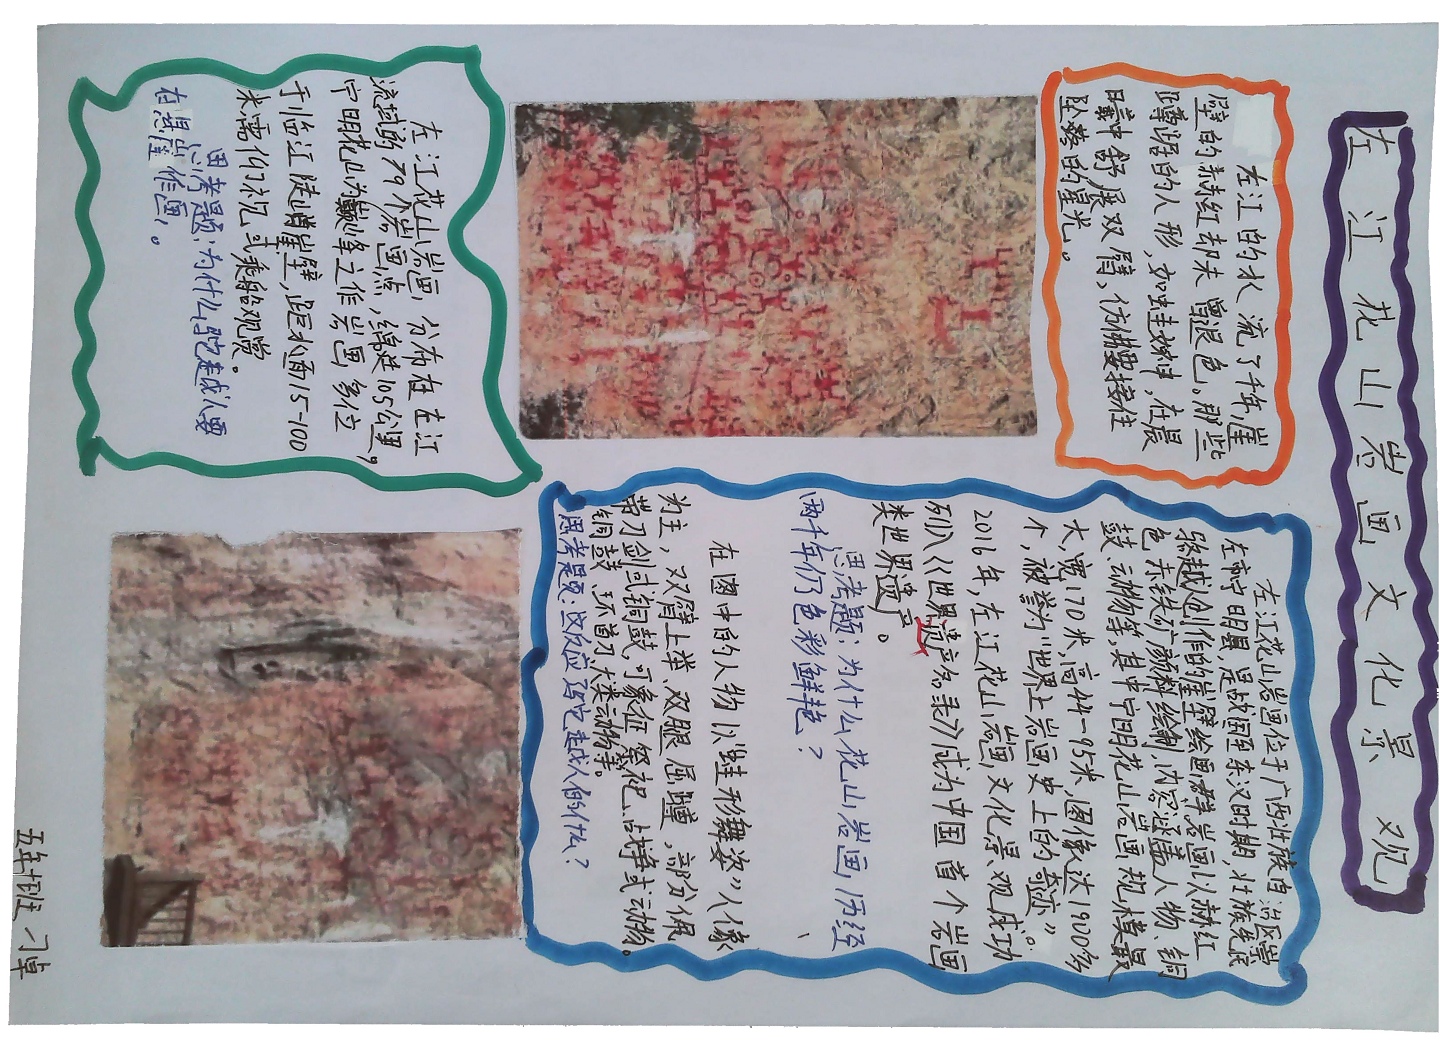 左江花山岩画文化景观
左江的水流了千年，崖
壁的赤红却未曾退色。那些
蹲踞的人形，如蛙跃神，在晨
曦中舒展双臂，仿佛要接住
坠落的星光。
左江花山岩画位于广西壮族自治区崇
左市宁明县，是战国至东汉时期，壮族先民
骆越创作的崖壁绘画群岩画以赭红
色赤铁矿颜料绘制，内容涵盖人物、铜
鼓、动物等，其中宁明花山岩画规模最
大，宽170米，高44-95米，图像达1900余
个，被誉为“世界上岩画史上的奇迹”。
2016年，左江花山岩画文化景观成功
列入《世界遗产名录》成为中国首个岩画
类世界遗产。
思考题：为什么花山岩画历经
两千年仍色彩鲜艳？
在图中的人物以“蛙形舞姿”人像
为主，双臂上举、双腿屈蹲，部分佩
带刀剑或铜鼓，可象征祭祀、战争或动物。
铜鼓、环首刀、犬类动物等。
思考题：这反应骆越人的什么？
左江花山岩画，分布在左江
流域的79个岩画点，绵延105公里，
宁明花山为巅峰之作岩画多位
于临江陡峭崖壁，距水面15-100
米需仰视或乘船观赏。
思考题：为什么骆越人要
在悬崖作画？。
五年1班 刁卓